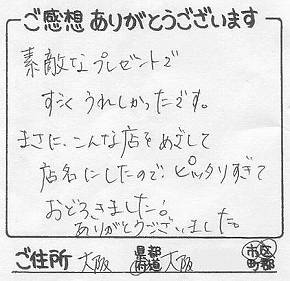 ご感想ありがとうございます
素敵なプレゼントで
すごくうれしかったです。
まさに、こんな店をめざして
店名にしたので、ピッタリすぎて
おどろきました!
ありがとうございました。
ご住所 大阪 都道府県 大阪 市区町郡